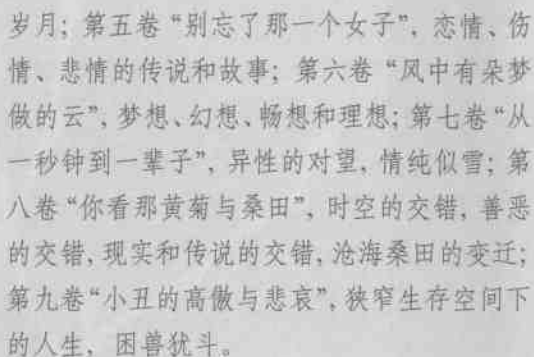 岁月；第五卷“别忘了那一个女子”，恋情、伤
情、悲情的传说和故事；第六卷“风中有朵梦
做的云”，梦想、幻想、畅想和理想；第七卷“从
一秒钟到一辈子”，异性的对望，情纯似雪；第
八卷“你看那黄菊与桑田”，时空的交错，善恶
的交错，现实和传说的交错，沧海桑田的变迁；
第九卷“小丑的高傲与悲哀”，狭窄生存空间下
的人生，困兽犹斗。